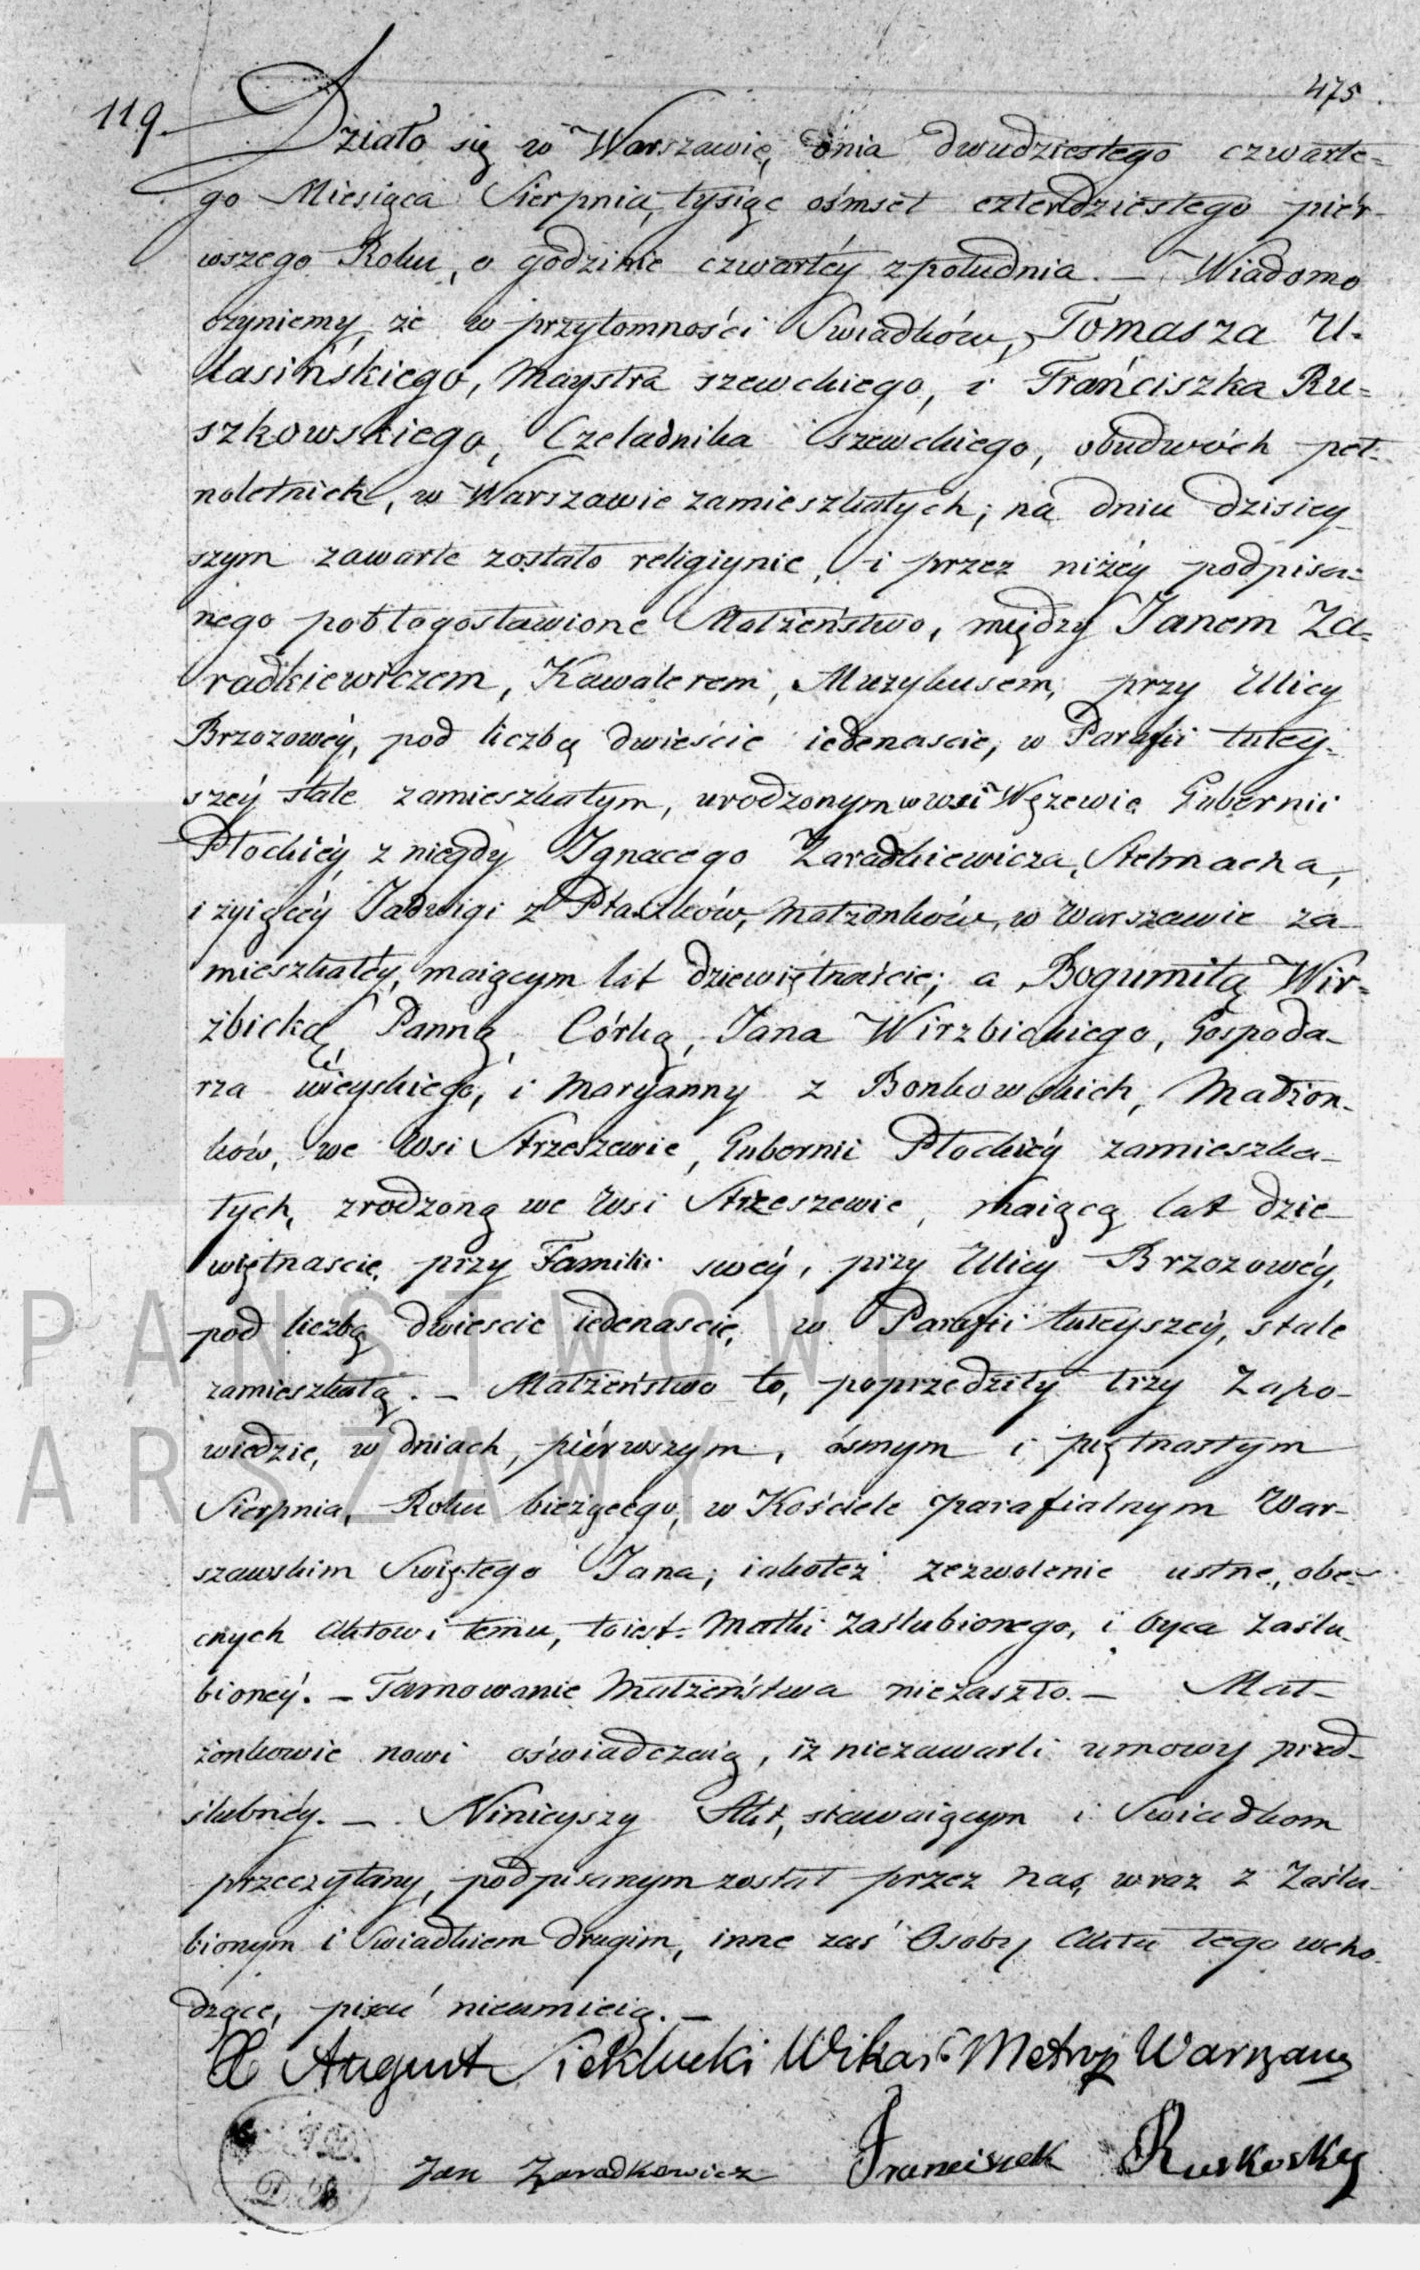 475
119.
Działo się w Warszawie, dnia dwudziestego czwarte=
go Miesiąca Sierpnia, tysiąc ośmset czterdziestego piér-
wszego Roku, o godzinie czwartéy zpołudnia. — Wiadomo
czyniemy, że w przytomności Swiadków, Tomasza U-
lasińskiego, Maystra szewckiego, i Franciszka Ru=
szkowskiego, Czeladnika szewckiego, obudwóch peł-
noletnich, w Warszawie zamieszkałych; na dniu dzisiey
szym zawarte zostało religiynie, i przez niżéy podpisa=
nego pobłogosławione Małżeństwo, między Janem Za=
radkiewiczem, Kawalerem, Muzykusem, przy Ulicy
Brzozowéy, pod liczbą dwieście iedenaście, w Parafii tutey-
széy stale zamieszkałym, urodzonym w wsi Wężewie Gubernii
Płockiéy, z niegdy Ignacego Zaradkiewicza, Stelmacha,
i żyiącéy Jadwigi z Ptaszków, Małżonków, w Warszawie za-
mieszkałéy, maiącym lat dziewiętnaście; a Bogumiłą Wir=
zbicką, Panną, Córką, Jana Wirzbickiego, Gospoda-
rza wieyskiego, i Maryanny z Bonkowskich, Małżon-
ków, we Wsi Strzeszewie, Gubernii Płockiéy zamieszka-
łych, zrodzoną we Wsi Strzeszewie, maiącą lat dzie-
więtnascie, przy Familii swéy, przy Ulicy Brzozowéy,
pod liczbą dwiescie iedenascie, w Parafii tuteyszéy, stale
zamieszkałą. — Małżeństwo to, poprzedziły trzy Zapo-
wiedzie, w dniach, piérwszym, ósmym i piętnastym
Sierpnia, Roku bieżącego, w Kościele parafialnym War-
szawskim Swiętego Jana; iakoteż zezwolenie ustne, obe-
cnych Aktowi temu, toiest: Matki Zaślubionego, i Oyca Zaślu-
bionéy. — Tamowanie Małżeństwa niezaszło. — Mał-
żonkowie nowi oświadczaią, iż niezawarli umowy przed-
ślubnéy. — Ninieyszy Akt, stawaiącym i Swiadkom
przeczytany, podpisanym został przez Nas, wraz z Zaślu-
bionym i Swiadkiem drugim, inne zaś Osoby Aktu tego wcho-
dzące, pisać nieumieią. —
X August Sieklucki Wikar: Metrop Warszaws
Jan Zaradkewicz Franciszek Ruskosky
PAŃSTWOWE
ARSZAWY